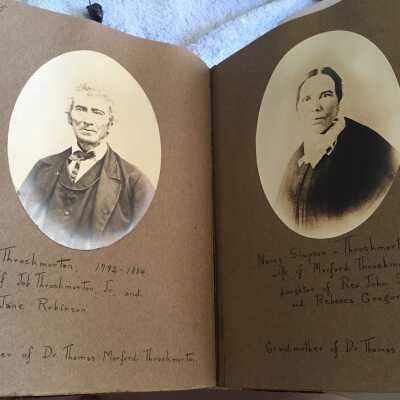 Throckmorton, 1792-1884
of Job Throckmorton, Jr. and
Jane Robinson
of Dr. Thomas Morford Throckmorton.
Nancy Simpson - Throckmort
wife of Morford Throckm
daughter of Rev. John S
and Rebecca Gregor
Grandmother of Dr. Thomas